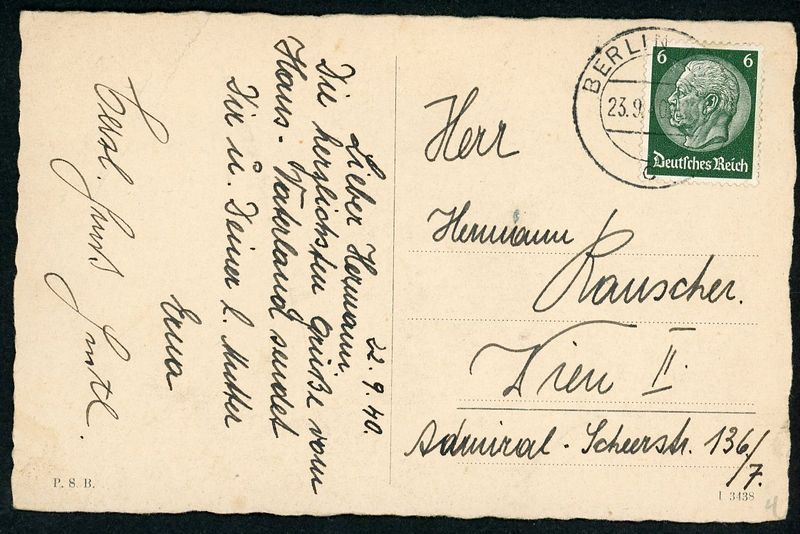 22.9.40.
Lieber Hermann.
Die herzlichsten Grüße vom
Haus-Vaterland sendet
Dir u. Deiner l. Mutter
Erna
Herzl.
BERLIN
23.9.
6 6
Deutsches Reich
Herr
Hermann
Rauscher.
Wien II.
Admiral-Scheerstr. 136/7.
P. S. B.
I 3438
4